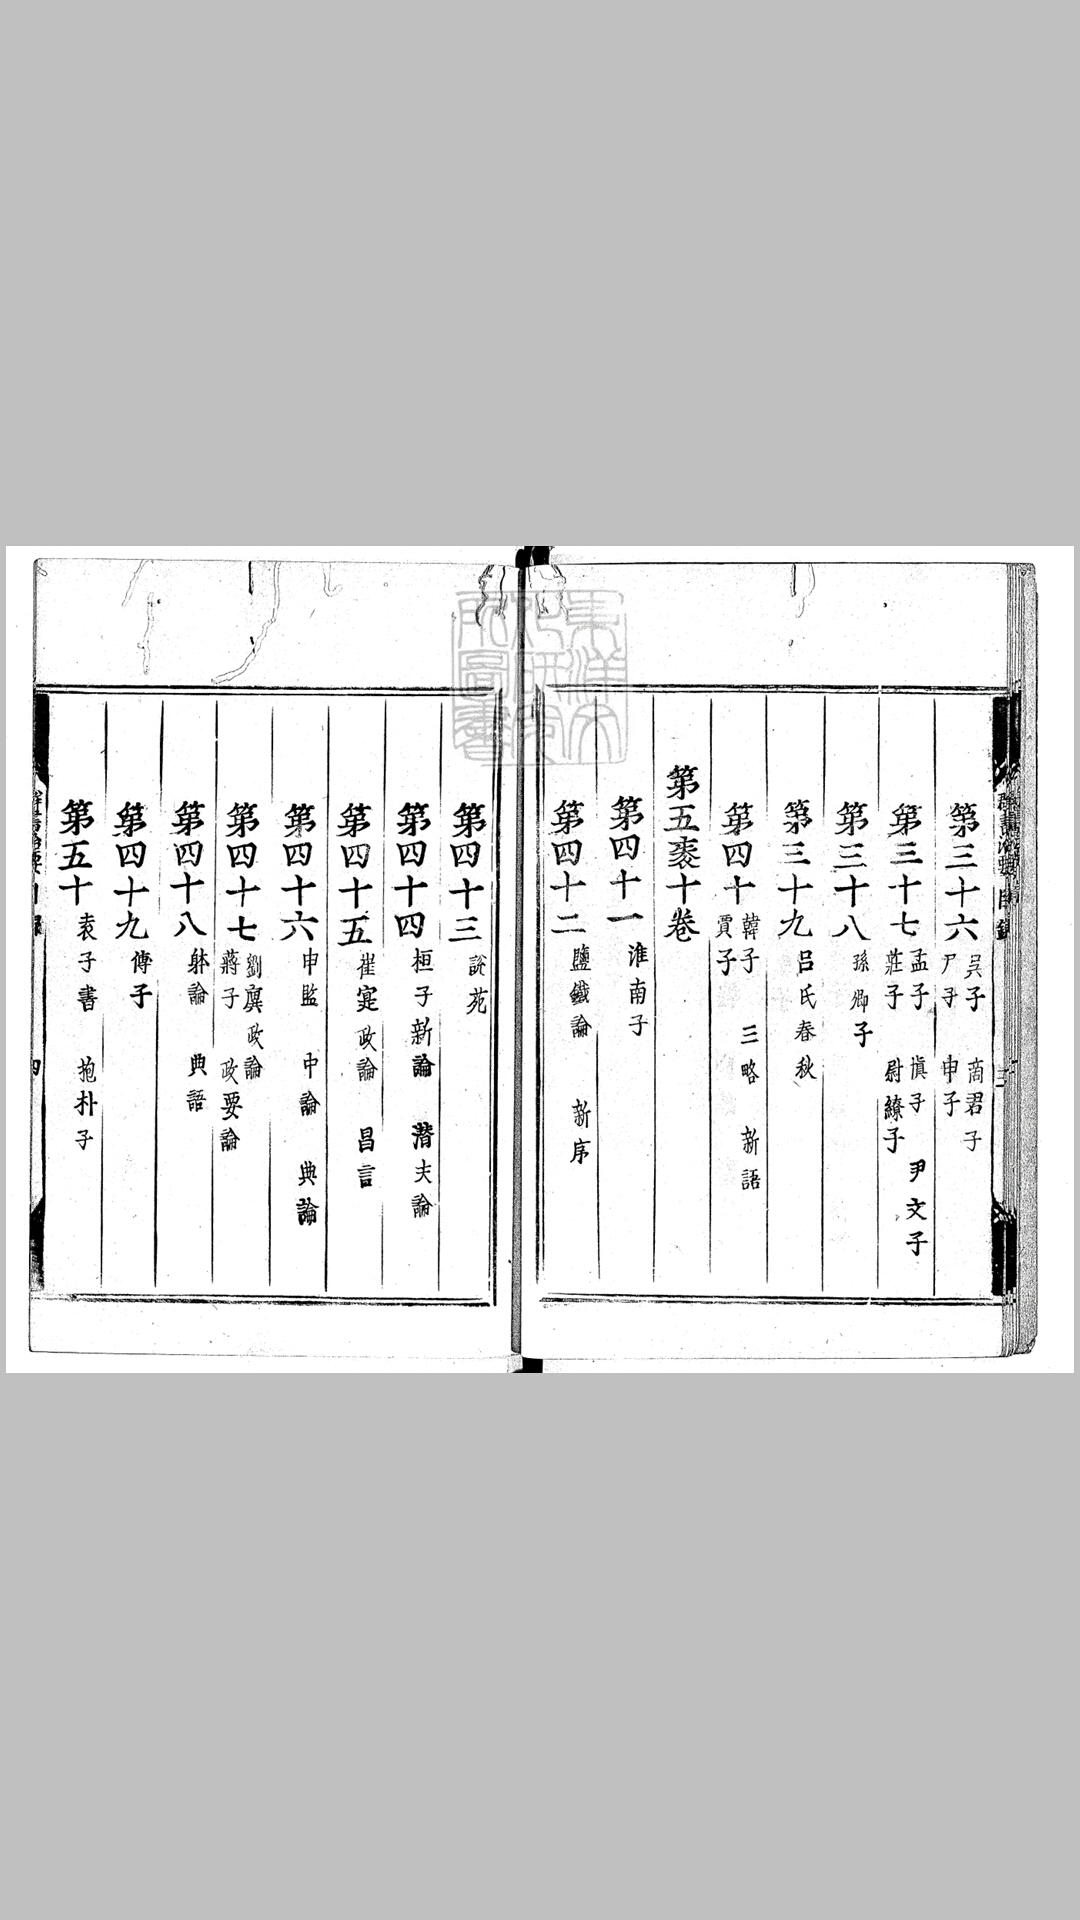 第三十六 吳子 商君子
尸子 申子
第三十七 孟子 愼子 尹文子
莊子 尉繚子
第三十八 孫卿子
第三十九 呂氏春秋
第四十 韓子 三略 新語
賈子
第五袠十卷
第四十一 淮南子
第四十二 鹽鐵論 新序
第四十三 說苑
第四十四 桓子新論 潛夫論
第四十五 崔寔政論 昌言
第四十六 申監 中論 典論
第四十七 劉廙政論
蔣子 政要論
第四十八 躰論 典語
第四十九 傅子
第五十 袁子書 抱朴子
四